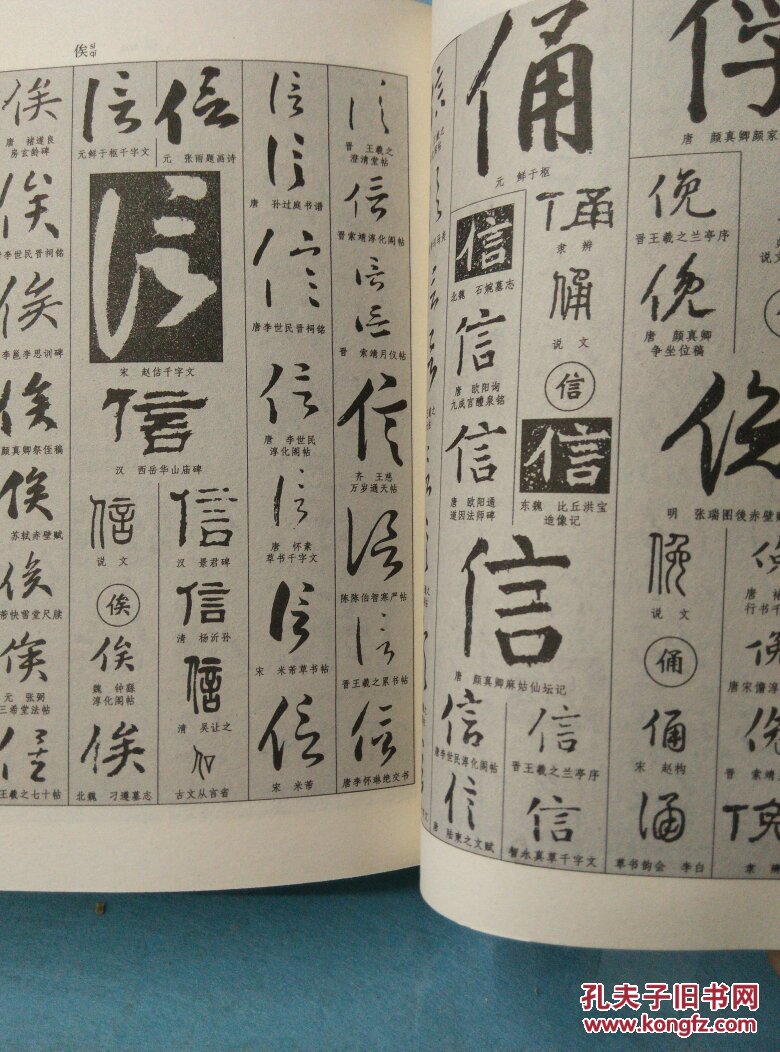 俟 sì qí
俟
唐 褚遂良
房玄龄碑
俟
唐李世民晋祠铭
俟
李邕李思训碑
俟
颜真卿祭侄稿
俟
苏轼赤壁赋
俟
芾快雪堂尺牍
俟
元 张弼
三希堂法帖
俟
王羲之七十帖
信
元鲜于枢千字文
信
元 张雨题画诗
信
宋 赵佶千字文
信
汉 西岳华山庙碑
信
说文
信
汉 景君碑
俟
信
清 杨沂孙
俟
魏 钟繇
淳化阁帖
信
清 吴让之
俟
北魏 刁遵墓志
古文从言省
信
信
唐 孙过庭书谱
信
唐李世民晋祠铭
信
唐 李世民
淳化阁帖
信
唐 怀素
草书千字文
信
宋 米芾草书帖
信
宋 米芾
信
晋 王羲之
澄清堂帖
信
晋索靖淳化阁帖
信
信
晋 索靖月仪帖
信
齐 王慈
万岁通天帖
信
陈陈伯智寒严帖
信
晋王羲之累书帖
信
唐李怀琳绝交书
俑
元 鲜于枢
信
北魏 石婉墓志
俑
隶辨
信
唐 欧阳询
九成宫醴泉铭
俑
说文
信
信
唐 欧阳通
道因法师碑
信
东魏 比丘洪宝
造像记
信
唐 颜真卿麻姑仙坛记
信
唐李世民淳化阁帖
信
晋王羲之兰亭序
信
唐 陆柬之文赋
信
智永真草千字文
俘
唐 颜真卿颜家
俛
晋王羲之兰亭序
说文
俛
唐 颜真卿
争坐位稿
俛
明 张瑞图後赤壁赋
俛
说文
俑
俑
宋 赵构
俑
草书韵会 李白
唐
行书千
俛
唐宋儋淳
俛
晋 索靖
俛
隶辨
孔夫子旧书网
www.kongfz.com